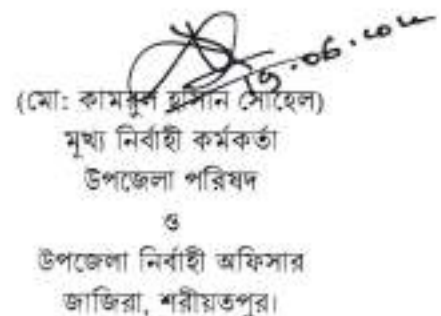 (মো: কামরুল হাসান সোহেল)
মুখ্য নির্বাহী কর্মকর্তা
উপজেলা পরিষদ
ও
উপজেলা নির্বাহী অফিসার
জাজিরা, শরীয়তপুর।